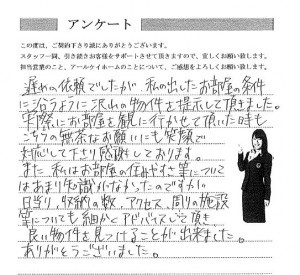 アンケート
この度は、ご契約下さり誠にありがとうございます。
スタッフ一同、引き続きお客様をサポートさせて頂きますので、宜しくお願い致します。
担当営業のこと、アールケイホームのことについて、ご感想をよろしくお願い致します。
遅れの依頼でしたが、私の出したお部屋の条件
に沿うように沢山の物件を提示して頂きました。
実際にお部屋を観に行かせて頂いた時も
こちらの無茶なお願いにも笑顔で
対応して下さり感謝しております。
また、私はお部屋の住みやすさ等については
あまり知識がなかったのですが
日当り、収納の数、アクセス、周りの施設
等についても細かくアドバイスして頂き
良い物件を見つけることが出来ました。
ありがとうございました。